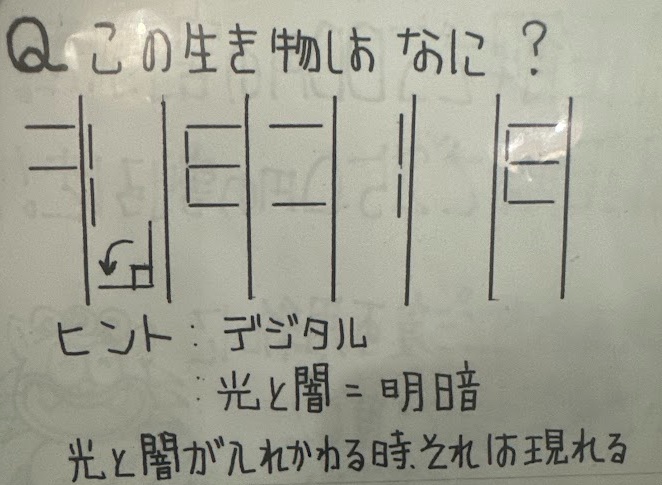 Q この生き物はなに？
ヒント：デジタル
：光と闇＝明暗
光と闇が入れかわる時、それは現れる